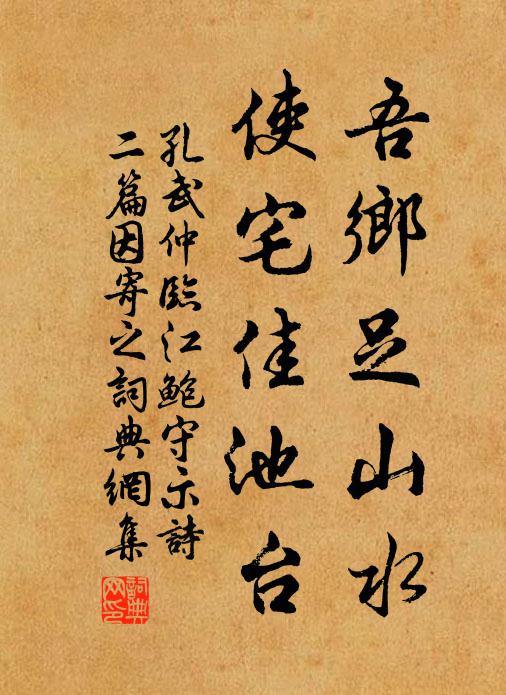 吾鄉足山水
使宅佳池台
孔武仲臨江鮑守示詩
二篇因寄之詞典網集
詞典網印